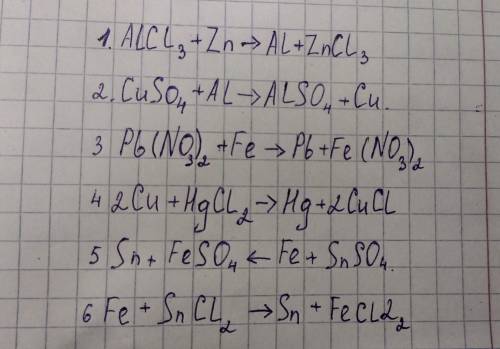 1. ALCL₃ + Zn → AL + ZnCL₃
2. CuSO₄ + AL → ALSO₄ + Cu.
3 Pb(NO₃)₂ + Fe → Pb + Fe(NO₃)₂
4 2Cu + HgCL₂ → Hg + 2CuCL
5 Sn + FeSO₄ ← Fe + SnSO₄.
6 Fe + SnCL₂ → Sn + FeCL2₂